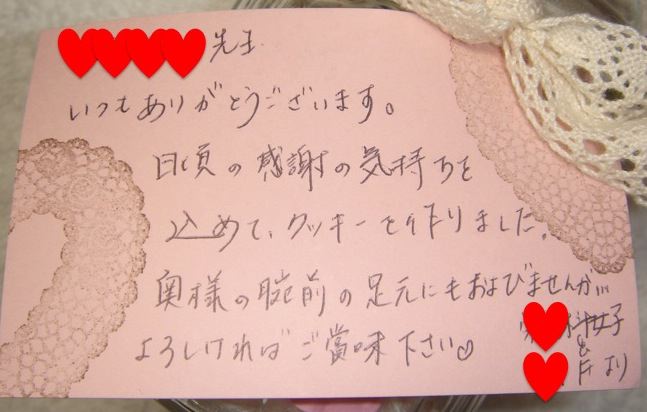 先生
いつもありがとうございます。
日頃の感謝の気持ちを
込めて、クッキーを作りました。
奥様の腕前の足元にもおよびませんが…
よろしければご賞味下さい♡
科女子
より